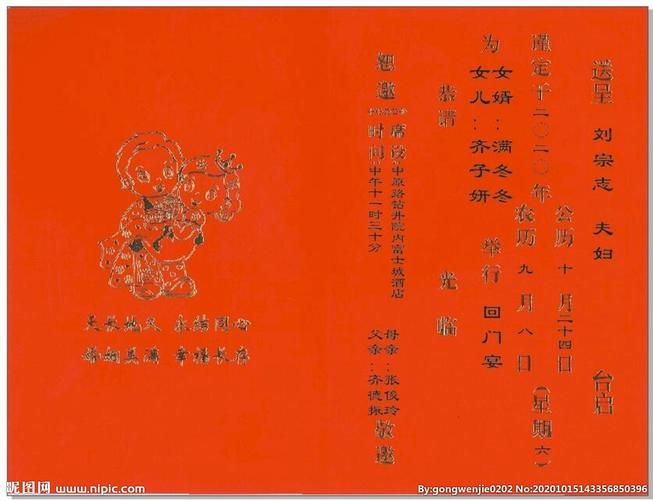 送呈 刘宗志 夫妇 台启
谨定于二〇二〇年
公历 十月二十四日
农历 九月八日
(星期六)
为
女婿：满冬冬
女儿：齐子妍
举行 回门宴
恭请 光临
恕邀
席设：中原路钻井院内富士城酒店
时间：中午十一时三十分
母亲：张俊玲
父亲：齐德振
敬邀
天长地久 永结同心
婚姻美满 幸福长存
昵图网 www.nipic.com
By:gongwenjie0202 No:20201015143356850396